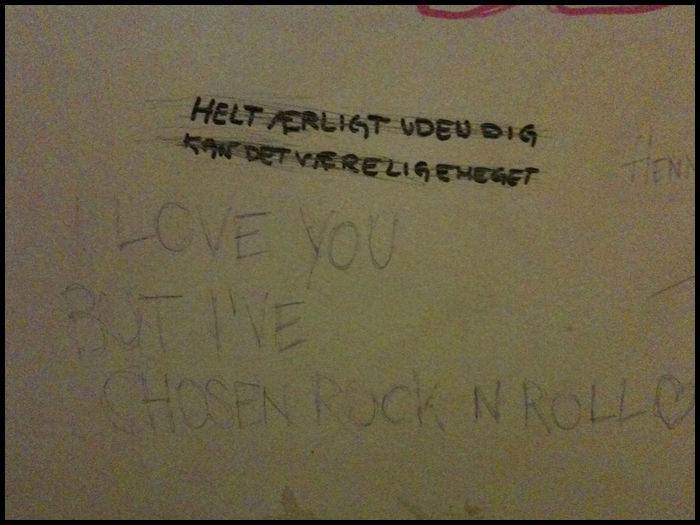 HELT ÆRLIGT UDEN DIG
KAN DET VÆRE LIGEMEGET
HENN
I LOVE YOU
BUT I'VE
CHOSEN ROCK N ROLL♡